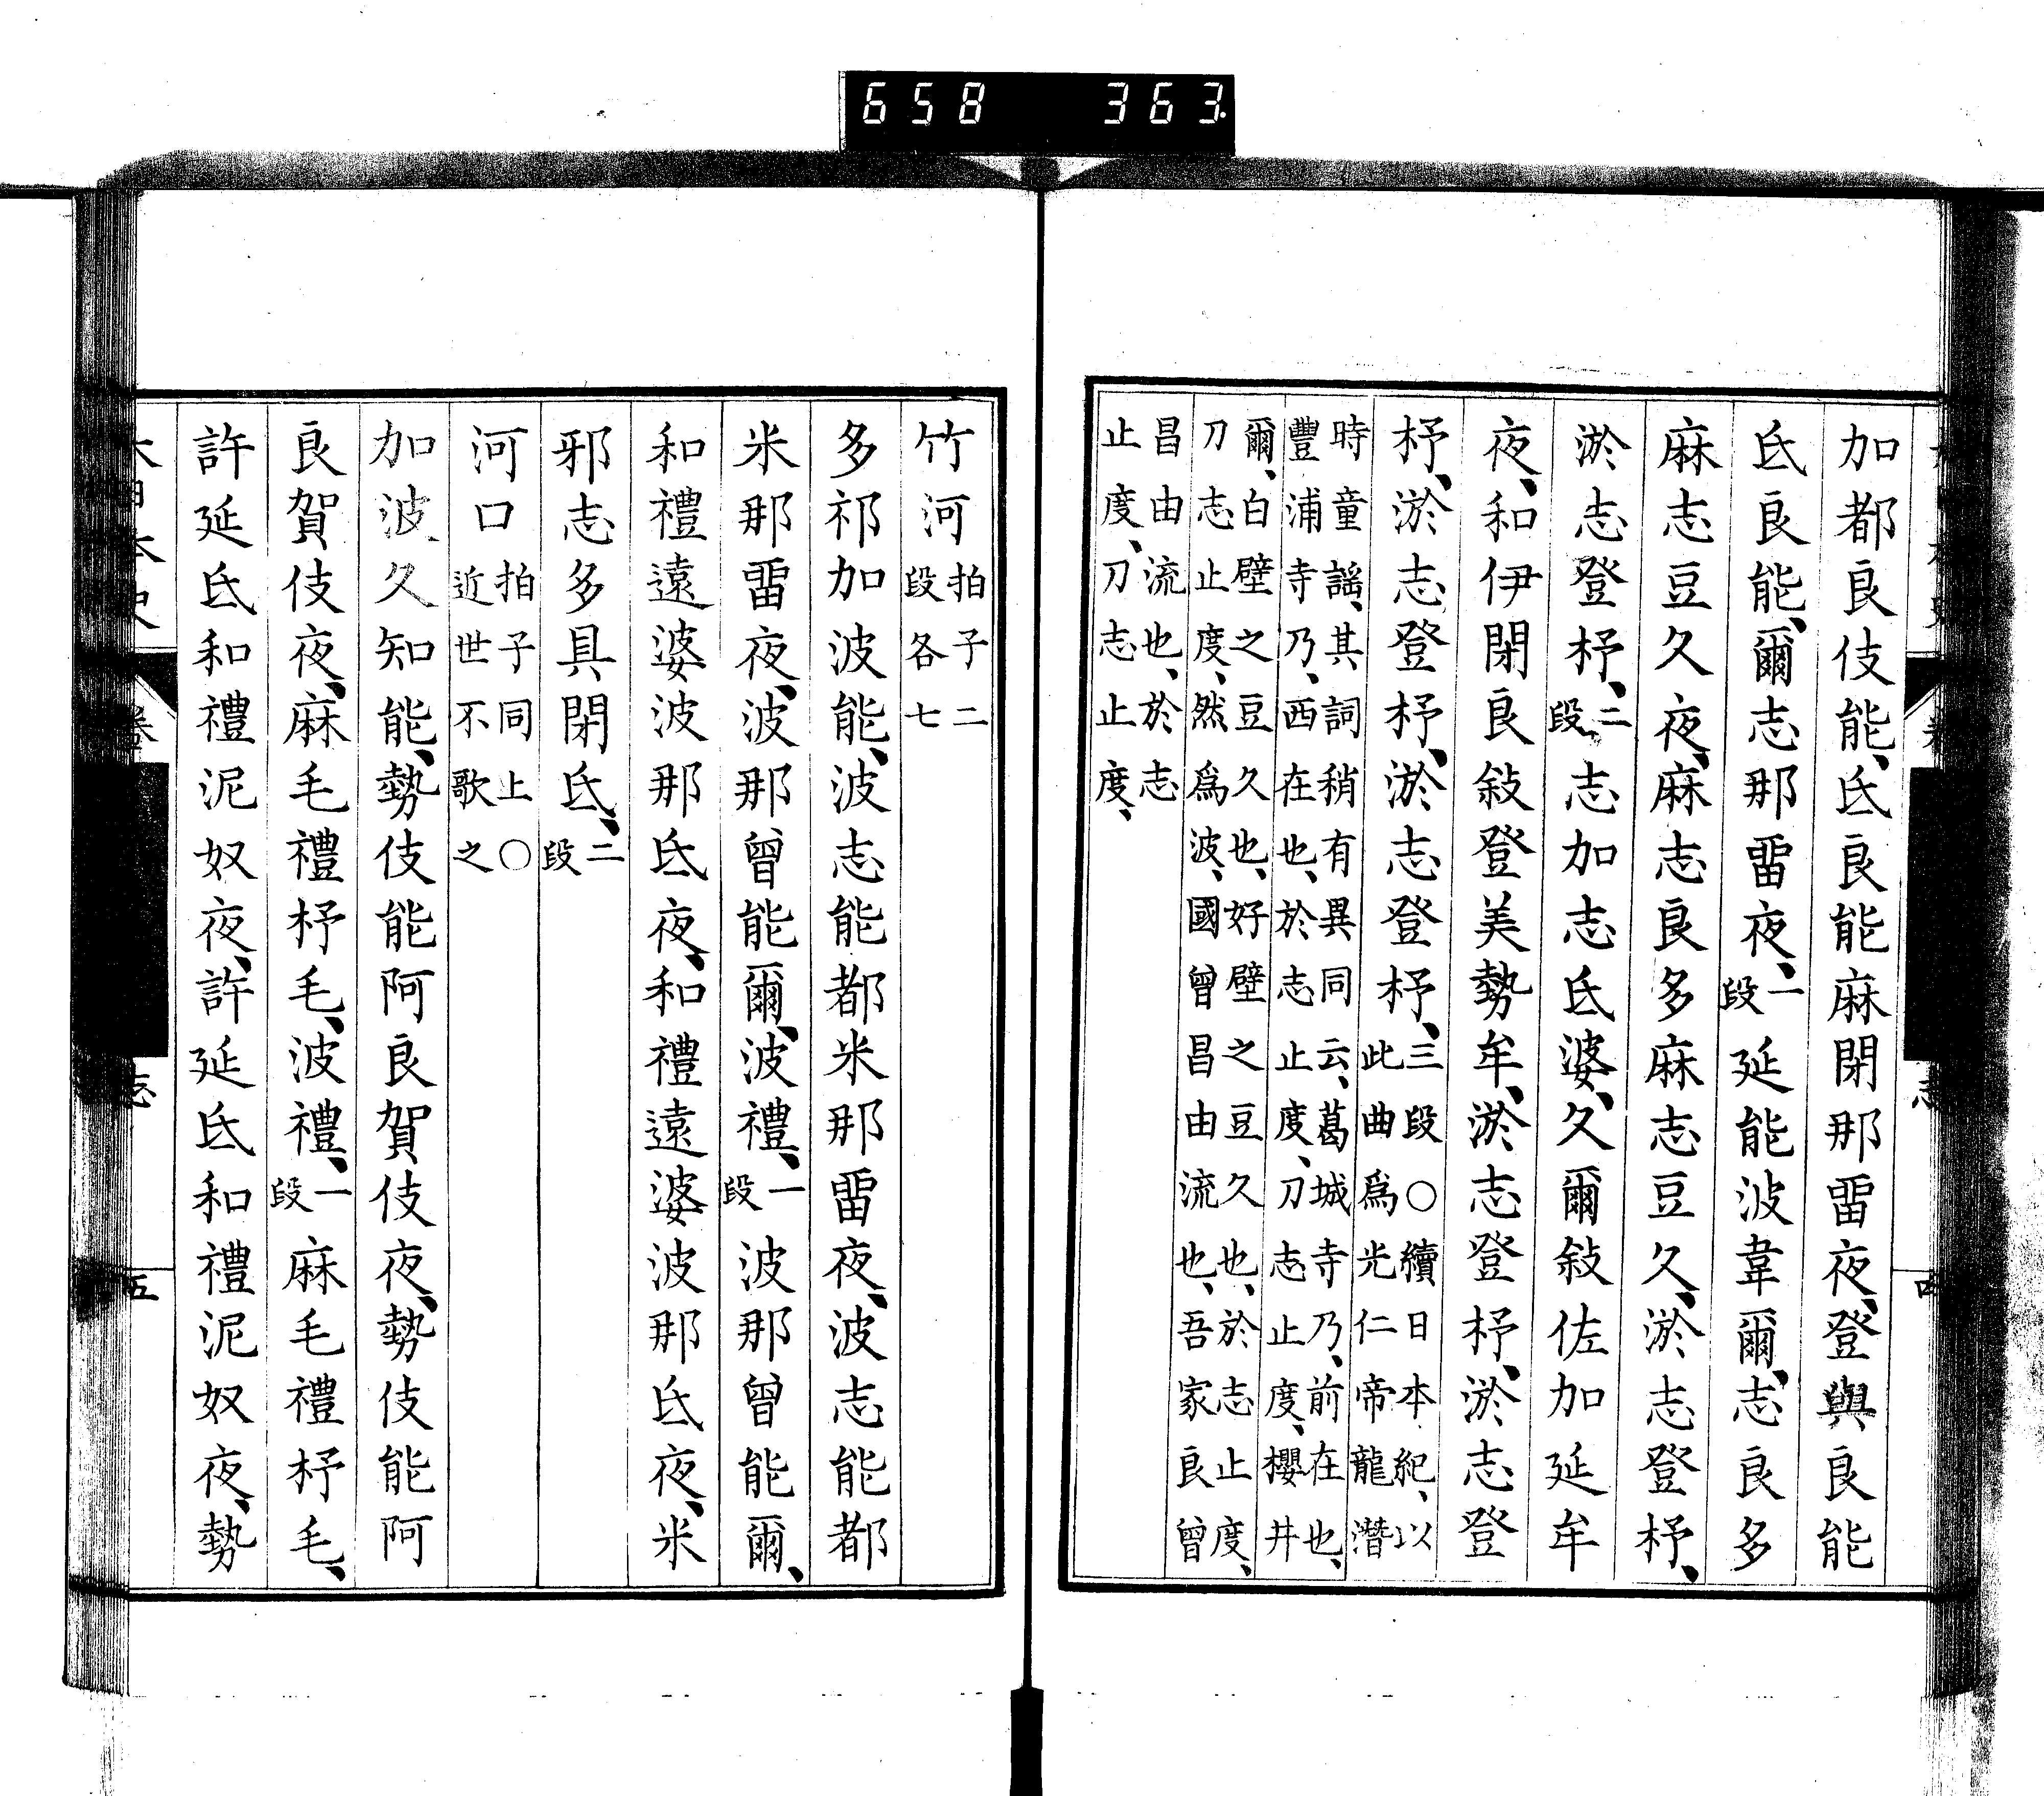 加都良伎能、氐良能麻閇那畱夜、登與良能
氐良能、爾志那畱夜、一段延能波韋爾、志良多
麻志豆久夜、麻志良多麻志豆久、淤志登杼、
淤志登杼、二段志加志氐婆、久爾敍佐加延牟
夜、和伊閇良敍登美勢牟、淤志登杼、淤志登
杼、淤志登杼、淤志登杼、三段〇續日本紀、以
此曲爲光仁帝龍潛
時童謠、其詞稍有異同云、葛城寺乃、前在也、
豐浦寺乃、西在也、於志止度、刀志止度、櫻井
爾、白壁之豆久也、好壁之豆久也、於志止度、
刀志止度、然爲波、國曾昌由流也、吾家良曾
昌由流也、於志
止度、刀志止度、
竹河拍子二
段各七
多祁加波能、波志能都米那畱夜、波志能都
米那畱夜、波那曾能爾、波禮、一段波那曾能爾、
和禮遠婆波那氐夜、和禮遠婆波那氐夜、米
邪志多具閇氐、二段
河口拍子同上〇
近世不歌之
加波久知能、勢伎能阿良賀伎夜、勢伎能阿
良賀伎夜、麻毛禮杼毛、波禮、一段麻毛禮杼毛、
許延氐和禮泥奴夜、許延氐和禮泥奴夜、勢
志
五
658 363